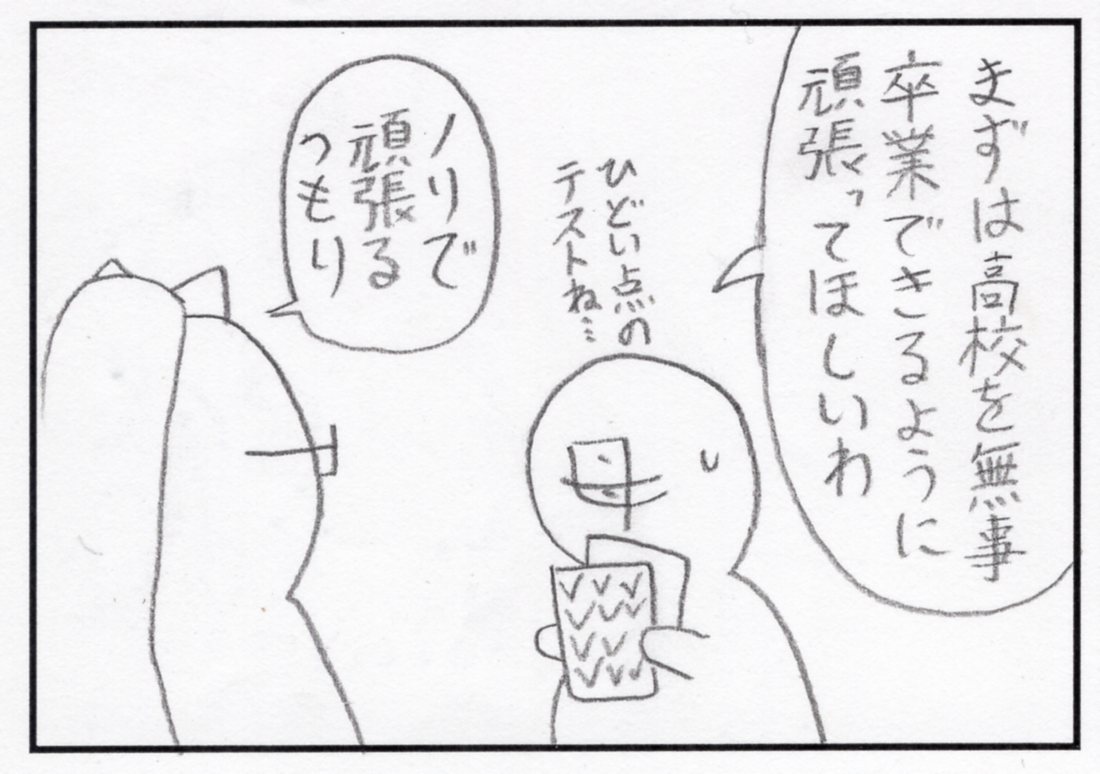 まずは高校を無事
卒業できるように
頑張ってほしいわ
ひどい点の
テストね…
ノリで
頑張る
つもり
母